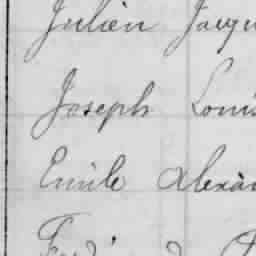 Julien Jacqu
Joseph Louis
Emile Alexan